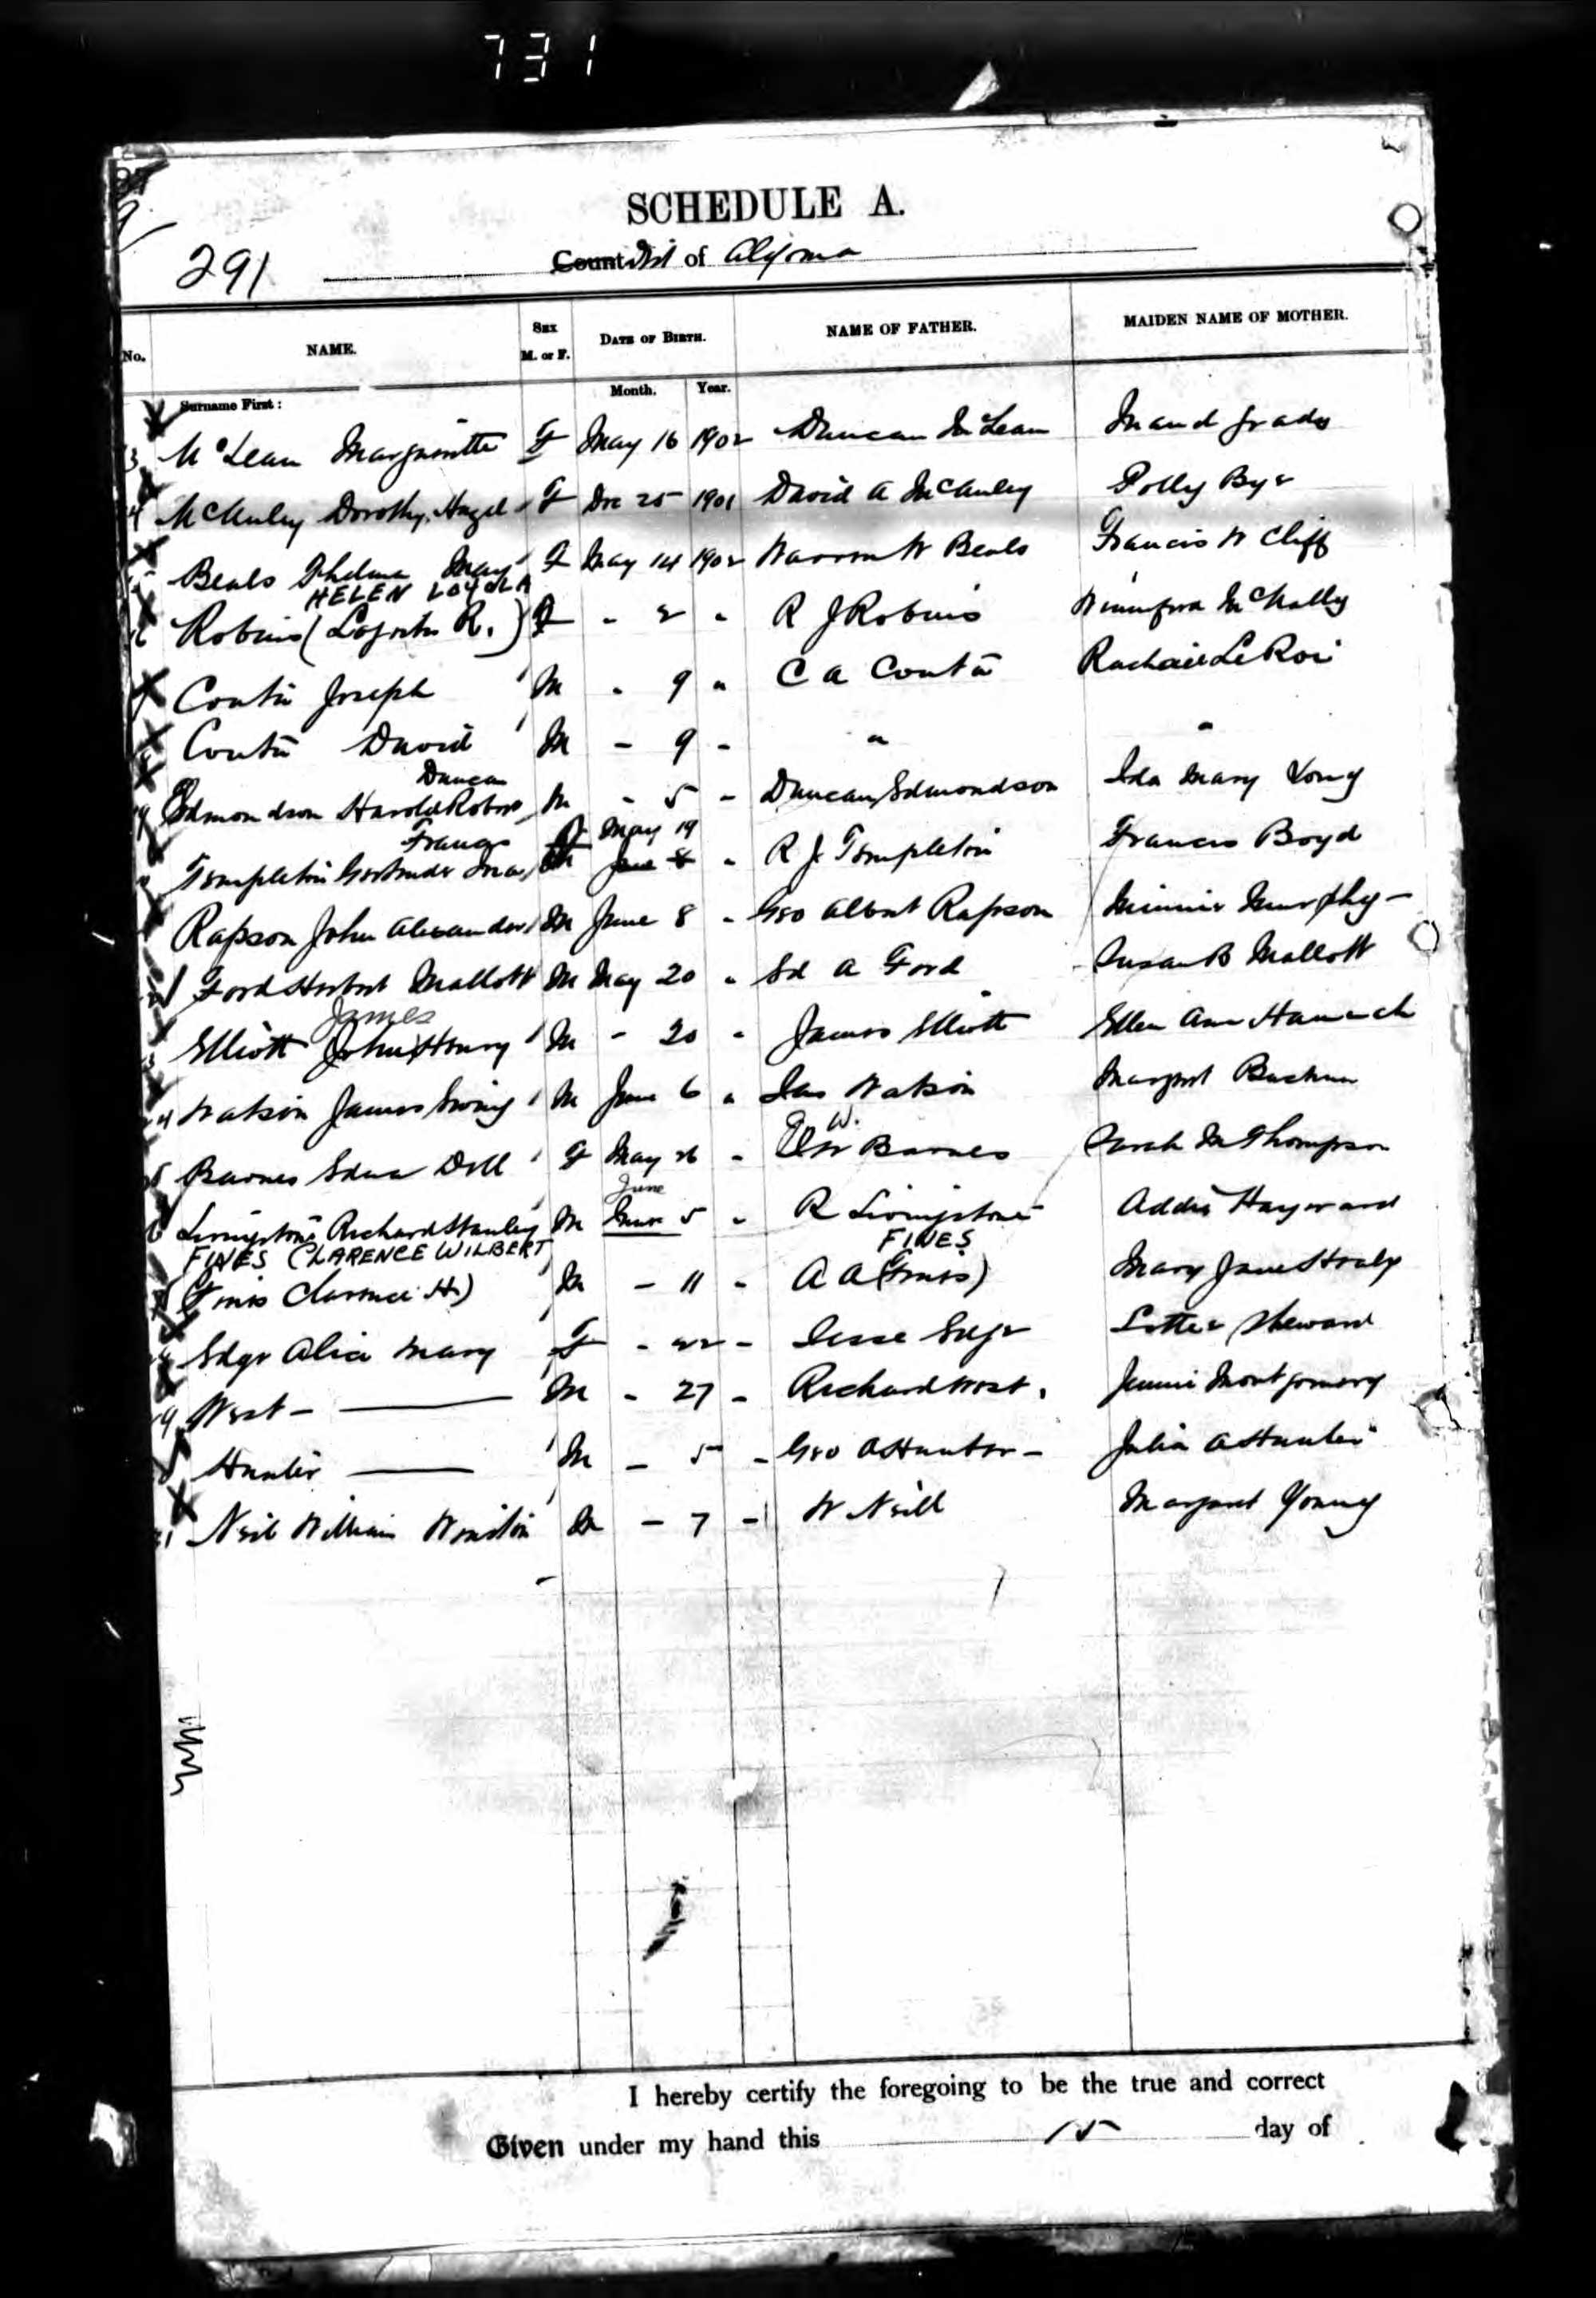 731
SCHEDULE A.
291
County Dist of Algoma
No. NAME. SEX M. or F. DATE OF BIRTH. NAME OF FATHER. MAIDEN NAME OF MOTHER.
Surname First: Month. Year.
McLean Margueritte F May 16 1902 Duncan McLean Maud
McAuley Dorothy Hazel F Dec 25 1901 David A McAuley Polly Bye
Beals Thelma May F May 14 1902 Warren W Beals Francis W Cliff
HELEN LOYOLA
Robins ( R.) F " 2 " R J Robins McNally
Coutu Joseph M " 9 " C A Coutu Rachail LeRoi
Coutu David M - 9 - " "
Duncan
Edmondson Harold Robert M - 5 - Duncan Edmondson Ida Mary Long
Francis F May 19
Templeton Gertrude M June 8 " R J Templeton Francis Boyd
Rapson John Alexander M June 8 " Geo Albert Rapson Minnie Murphy -
Ford Herbert Mallott M May 20 " Ed A Ford Susan B Mallott
James
Elliott John Henry M - 20 " James Elliott Ellen Ann
24 Watson James Irving M June 6 " Jas Watson Margret
W.
Barnes Edna Dell F May 26 - Barnes Sarah M Thompson
June
Livingstone Richard Stanley M June 5 " R Livingstone Addie Hayward
FINES CLARENCE WILBERT FINES
(Finis Clarence H) M - 11 - A A (Finis) Mary Jane Healy
Edge Alice Mary F - 22 - Jesse Edge Lottie Sheward
West - M - 27 - Richard West. Jennie Montgomery
Hunter M - 5 - Geo A Hunter - Julia A Hunter
Neil William Winston M - 7 - W Neill Margaret Young
I hereby certify the foregoing to be the true and correct
Given under my hand this 15 day of